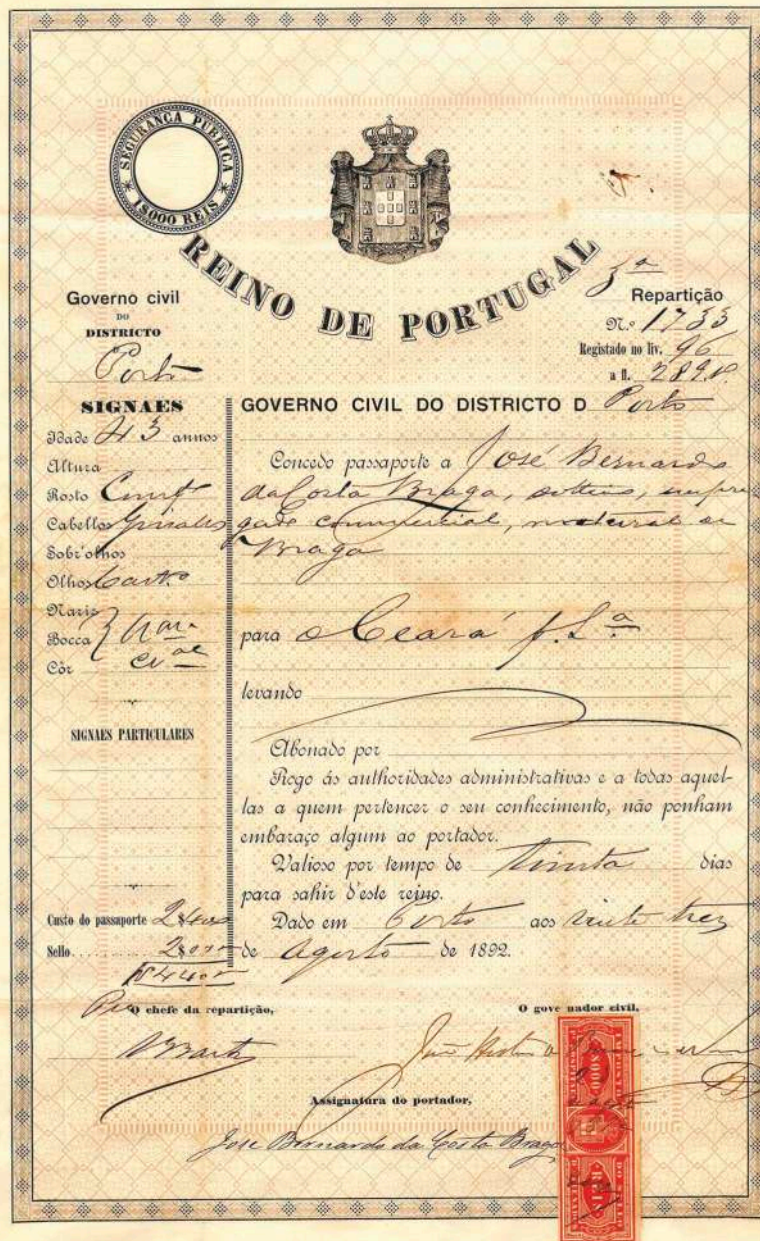 SEGURANÇA PUBLICA
1$000 REIS
REINO DE PORTUGAL
Governo civil
DO
DISTRICTO
Porto
3ª
Repartição
N.º 1733
Registado no liv. 96
a fl. 289 v.
SIGNAES
Idade 43 annos
Altura
Rosto Comp.
Cabellos Grisalhos
Sobr'olhos
Olhos Cast.º
Nariz
Bocca
Côr
SIGNAES PARTICULARES
Custo do passaporte 2$400
Sello
GOVERNO CIVIL DO DISTRICTO D Porto
Concedo passaporte a José Bernardo
da Costa Braga, solteiro, empre
gado commercial, natural de
Braga
para o Ceará p. L.ª
levando
Abonado por
Rogo ás authoridades administrativas e a todas aquel-
las a quem pertencer o seu conhecimento, não ponham
embaraço algum ao portador.
Valioso por tempo de trinta dias
para sahir d'este reino.
Dado em Porto aos vinte trez
de Agosto de 1892.
O chefe da repartição,
O gove nador civil,
Assignatura do portador,
José Bernardo da Costa Braga